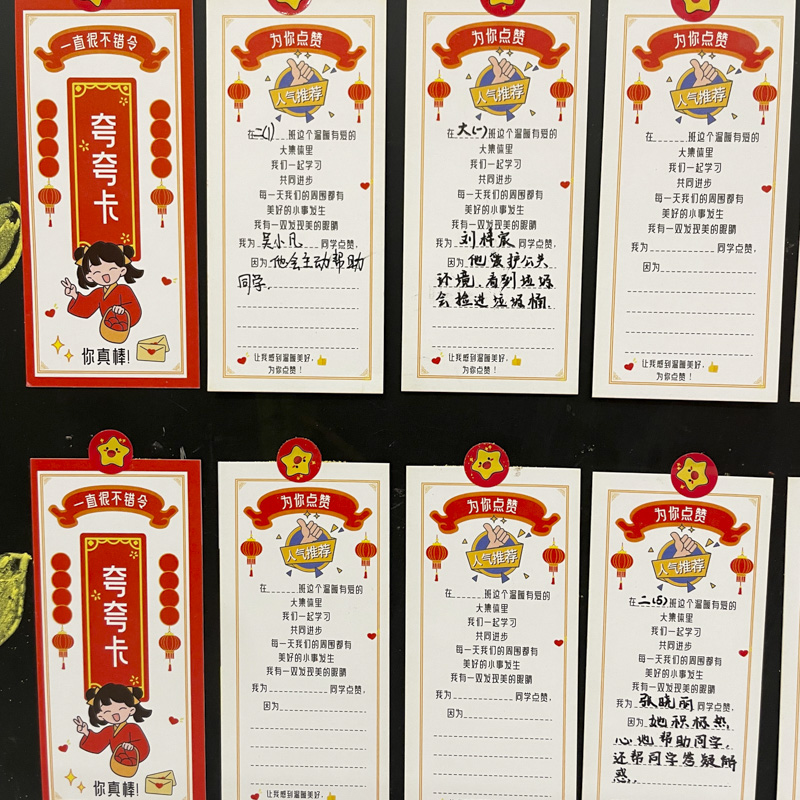 一直很不错令
夸夸卡
你真棒!
为你点赞
人气推荐
在二(1)班这个温暖有爱的
大集体里
我们一起学习
共同进步
每一天我们的周围都有
美好的小事发生
我有一双发现美的眼睛
我为吴小凡同学点赞,
因为他会主动帮助
同学。
让我感到温暖美好,
为你点赞!
为你点赞
人气推荐
在大(一)班这个温暖有爱的
大集体里
我们一起学习
共同进步
每一天我们的周围都有
美好的小事发生
我有一双发现美的眼睛
我为刘梓宸同学点赞,
因为他爱护公共
环境,看到垃圾
会捡进垃圾桶.
让我感到温暖美好,
为你点赞!
为你点赞
人气推荐
在______班这个温暖有爱的
大集体里
我们一起学习
共同进步
每一天我们的周围都有
美好的小事发生
我有一双发现美的眼睛
我为______同学点赞,
因为
让我感到温暖美好,
为你点赞!
一直很不错令
夸夸卡
你真棒!
为你点赞
人气推荐
在______班这个温暖有爱的
大集体里
我们一起学习
共同进步
每一天我们的周围都有
美好的小事发生
我有一双发现美的眼睛
我为______同学点赞,
因为
让我感到温暖美好,
为你点赞
人气推荐
在______班这个温暖有爱的
大集体里
我们一起学习
共同进步
每一天我们的周围都有
美好的小事发生
我有一双发现美的眼睛
我为______同学点赞,
因为
为你点赞
人气推荐
在二(5)班这个温暖有爱的
大集体里
我们一起学习
共同进步
每一天我们的周围都有
美好的小事发生
我有一双发现美的眼睛
我为张晓丽同学点赞,
因为她积极热
心地帮助同学,
还帮同学答疑解
惑.